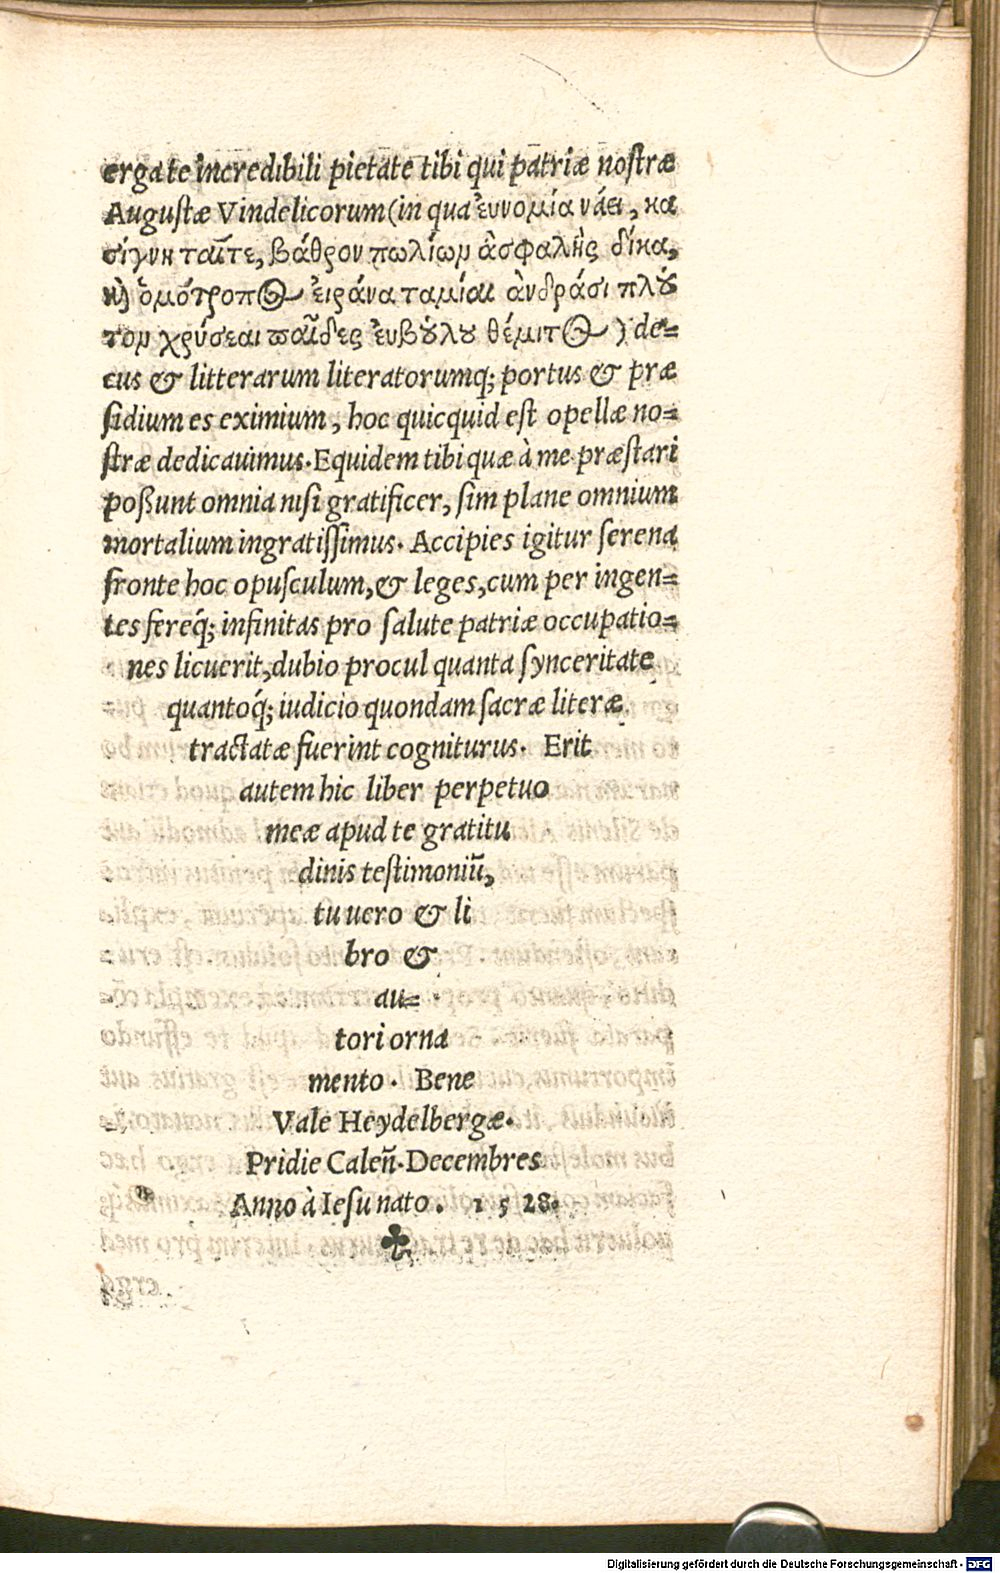 erga te incredibili pietate tibi qui patriæ noſtræ
Auguſtæ Vindelicorum (in qua ἐυνομία νάει, κα
σίγνη ταῖτε, βάθρον πωλίωμ ἀσφαλὴς δίκα,
κὴ ὁμότροπος ἐιράνα ταμίαι ἀνδράσι πλού
τομ χρύσεαι παῖδες ἐυβούλου θέμιτος) de⸗
cus & litterarum literatorumq́; portus & præ
ſidium es eximium, hoc quicquid eſt opellæ no⸗
ſtræ dedicauimus. Equidem tibi quæ à me præſtari
poſſunt omnia niſi gratificer, ſim plane omnium
mortalium ingratiſſimus. Accipies igitur ſerena
fronte hoc opuſculum, & leges, cum per ingen⸗
tes fereq́; infinitas pro ſalute patriæ occupatio⸗
nes licuerit, dubio procul quanta ſynceritate
quantoq́; iudicio quondam ſacræ literæ
tractatæ fuerint cogniturus. Erit
autem hic liber perpetuo
meæ apud te gratitu
dinis teſtimoniũ,
tu uero & li
bro &
au⸗
tori orna
mento. Bene
Vale Heydelbergæ.
Pridie Caleñ. Decembres
Anno à Ieſu nato. 1528.
Digitalisierung gefördert durch die Deutsche Forschungsgemeinschaft - DFG